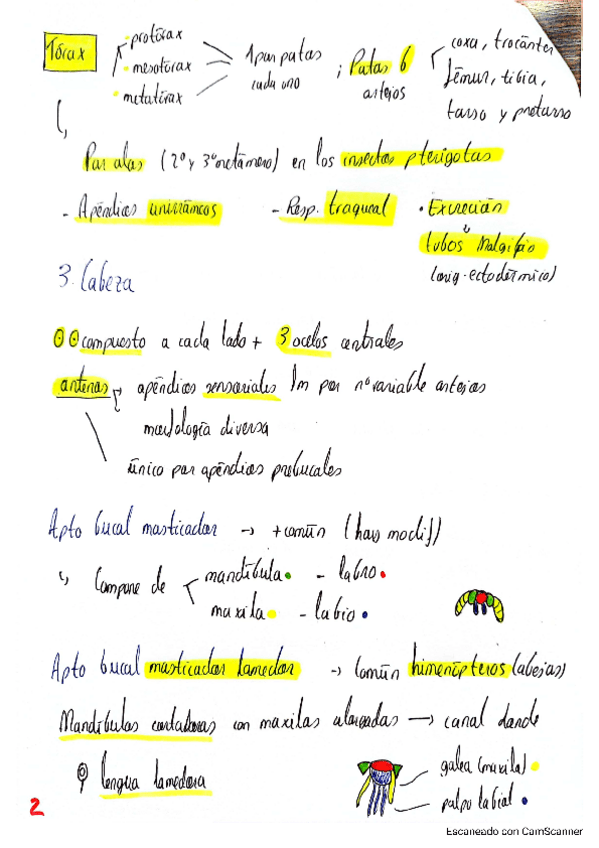 Tórax
protórax
mesotórax
metatórax
1 par patas
cada uno
; Patas 6
artejos
coxa, trocánter
fémur, tibia,
tarso y pretarso
Par alas (2º y 3º metámero) en los insectos pterigotas
- Apéndices unirrámeos
- Resp. traqueal
• Excreción
tubos Malgipio
(orig. ectodérmico)
3. Cabeza
compuesto a cada lado + 3 ocelos centrales
antenas → apéndices sensoriales fm por nº variable artejos
morfología diversa
único par apéndices prebucales
Apto bucal masticador → + común (hay modif)
Compone de
mandíbula - labro
maxila - labio
Apto bucal masticador lamedor → Común himenópteros (abejas)
Mandíbulas cortadoras con maxilas alargadas → canal donde
lengua lamedora
galea (maxila)
palpo labial
2
Escaneado con CamScanner